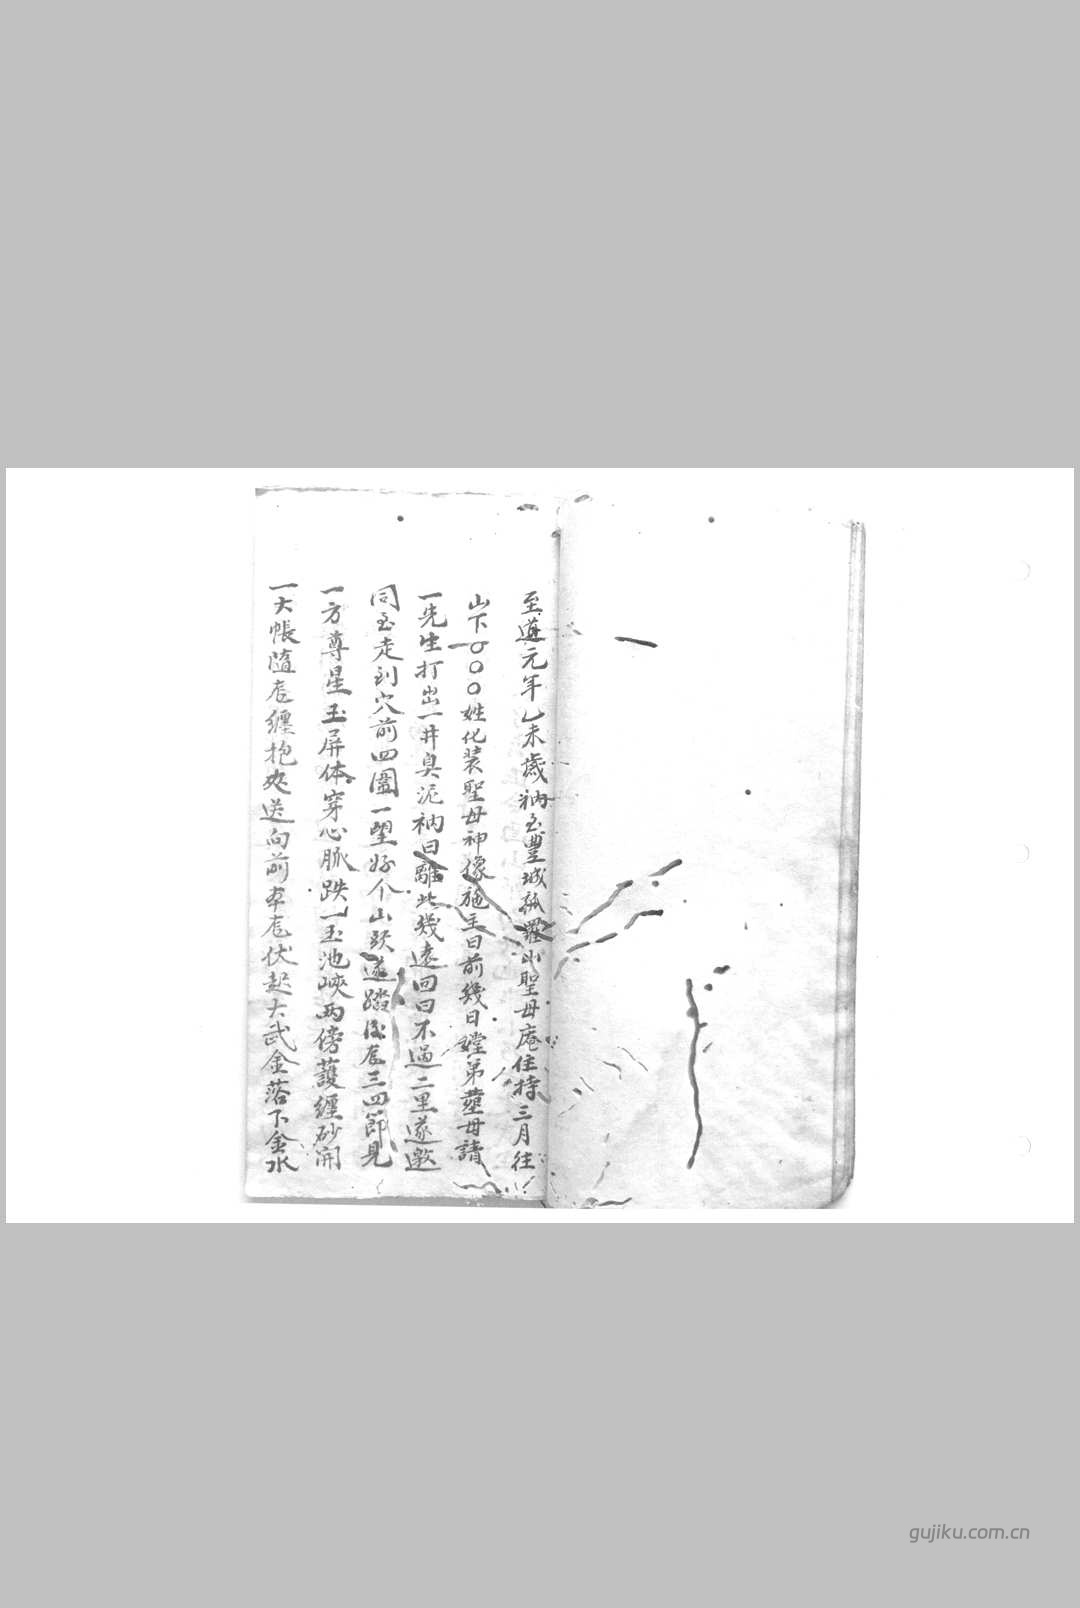 至道元年乙未歲衲至豐城孤羅山聖母庵住持三月往
山下一〇〇〇姓化装聖母神像施主曰前幾日螳弟塟母請
一先生打出一井臭泥衲曰離此幾遠回曰不過二里遂邀
同至走到穴前四圍一望好个山頭遂踏後龙三四節見
一方尊星玉屏体穿心脈跌一玉池峽两傍護纒砂開
一大帳隨龙纒抱夾送向前本龙伏起大武金落下金水
gujiku.com.cn